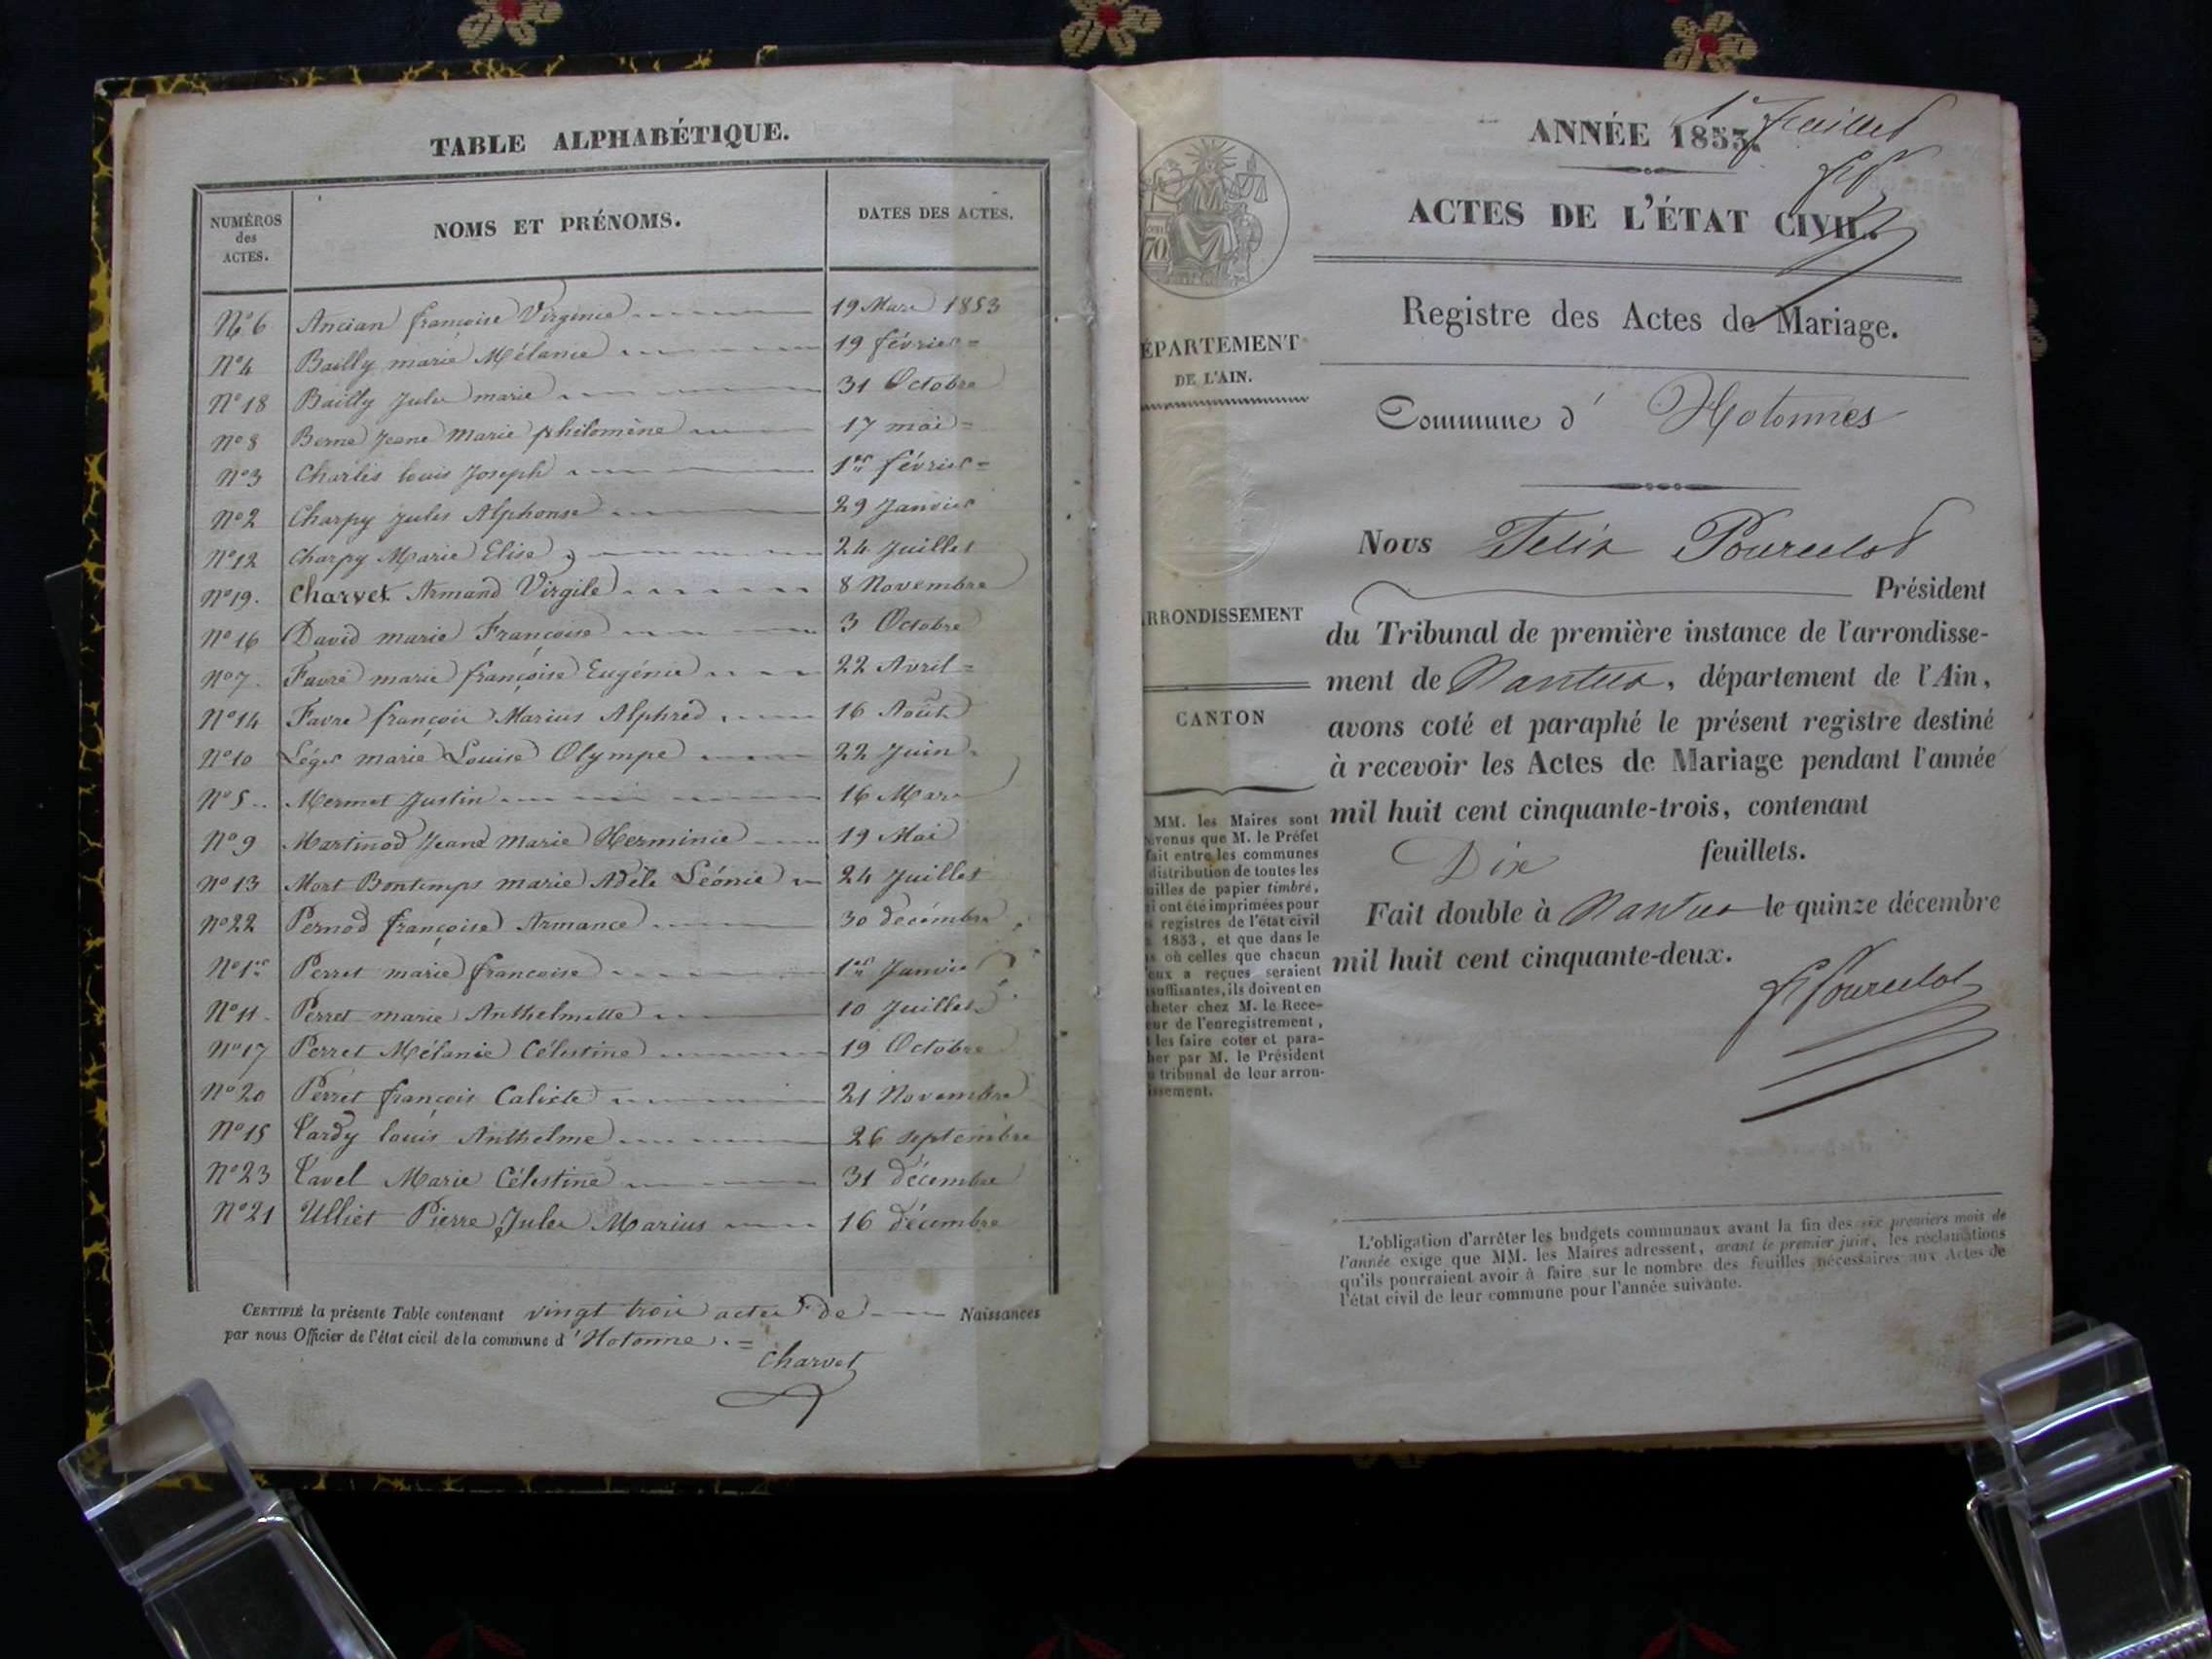 TABLE ALPHABÉTIQUE.
NUMÉROS des ACTES. NOMS ET PRÉNOMS. DATES DES ACTES.
N° 6 Ancian françoise Virginie 19 Mars 1853
N° 4 Bailly marie Mélanie 19 février =
N° 18 Bailly Jules marie 31 Octobre
N° 8 Berne Jeane Marie philomène 17 mai =
N° 3 Charles louis Joseph 1er février =
N° 2 Charpy Jules Alphonse 29 Janvier
N° 12 Charpy Marie Elise 24 Juillet
N° 19. Charvet Armand Virgile 8 Novembre
N° 16 David marie Françoise 3 Octobre
N° 7. Favre marie françoise Eugénie 22 Avril =
N° 14 Favre françois Marius Alphred 16 Août
N° 10 Léger marie Louise Olympe 22 Juin
N° 5.. Mermet Justin 16 Mars
N° 9 Martinod Jeane Marie Herminie 19 Mai
N° 13 Mort Bontemps marie Adèle Léonie 24 Juillet
N° 22 Pernod françoise Armance 30 décembre
N° 1er Perret marie françoise 1er Janvier
N° 11. Perret marie Anthelmette 10 Juillet
N° 17 Perret Mélanie Célestine 19 Octobre
N° 20 Perret françois Calixte 21 Novembre
N° 15 Tardy louis Anthelme 26 septembre
N° 23 Tavel Marie Célestine 31 décembre
N° 21 Ulliet Pierre Jules Marius 16 décembre
CERTIFIÉ la présente Table contenant vingt trois actes de Naissances
par nous Officier de l'état civil de la commune d'Hotonne. =
Charvet
1er feuillet
ANNÉE 1853.
ACTES DE L'ÉTAT CIVIL.
Registre des Actes de Mariage.
70
ÉPARTEMENT
DE L'AIN.
Commune d' Hotonnes
Nous Felix Pourcelot
Président
RRONDISSEMENT
du Tribunal de première instance de l'arrondisse-
ment de Nantua, département de l'Ain,
CANTON
avons coté et paraphé le présent registre destiné
à recevoir les Actes de Mariage pendant l'année
mil huit cent cinquante-trois, contenant
Dix feuillets.
Fait double à Nantua le quinze décembre
mil huit cent cinquante-deux.
F Pourcelot
MM. les Maires sont
venus que M. le Préfet
fait entre les communes
distribution de toutes les
uilles de papier timbré,
i ont été imprimées pour
registres de l'état civil
1853, et que dans le
s où celles que chacun
eux a reçues seraient
suffisantes, ils doivent en
heter chez M. le Rece-
eur de l'enregistrement,
les faire coter et para-
her par M. le Président
tribunal de leur arron-
issement.
L'obligation d'arrêter les budgets communaux avant la fin des six premiers mois de
l'année exige que MM. les Maires adressent, avant le premier juin, les réclamations
qu'ils pourraient avoir à faire sur le nombre des feuilles nécessaires aux Actes de
l'état civil de leur commune pour l'année suivante.